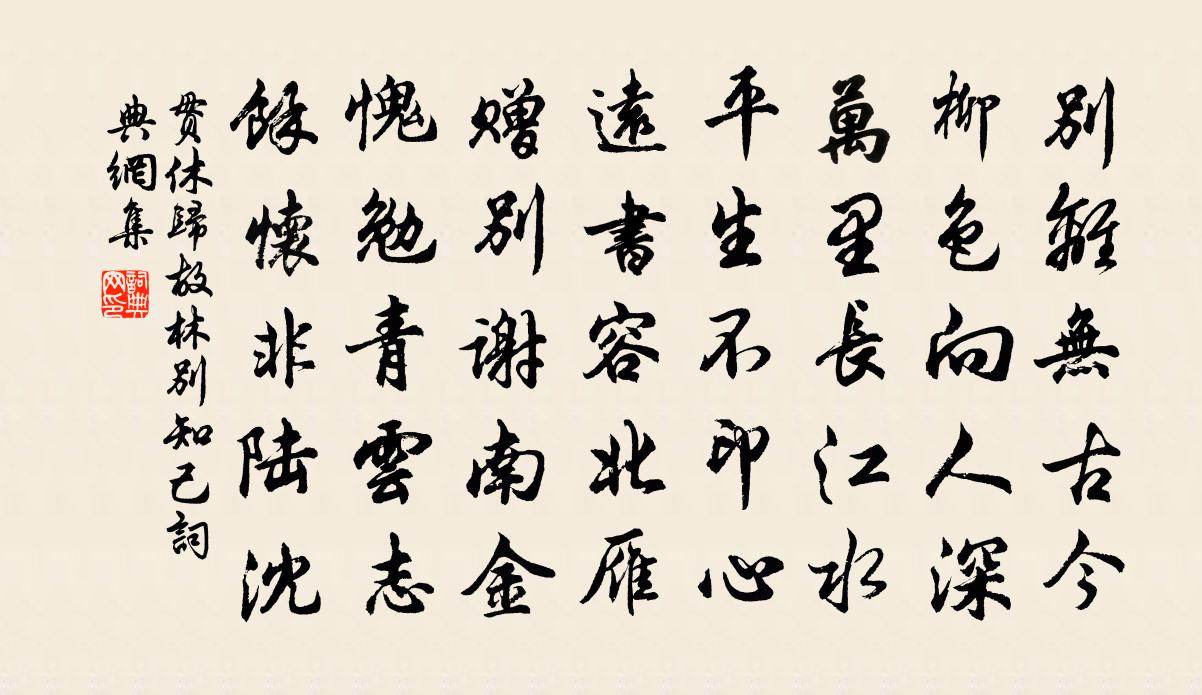 別離無古今
柳色向人深
萬里長江水
平生不印心
遠書容北雁
贈別謝南金
愧勉青雲志
餘懷非陸沈
貫休歸故林別知己詞
典網集
詞典
网印